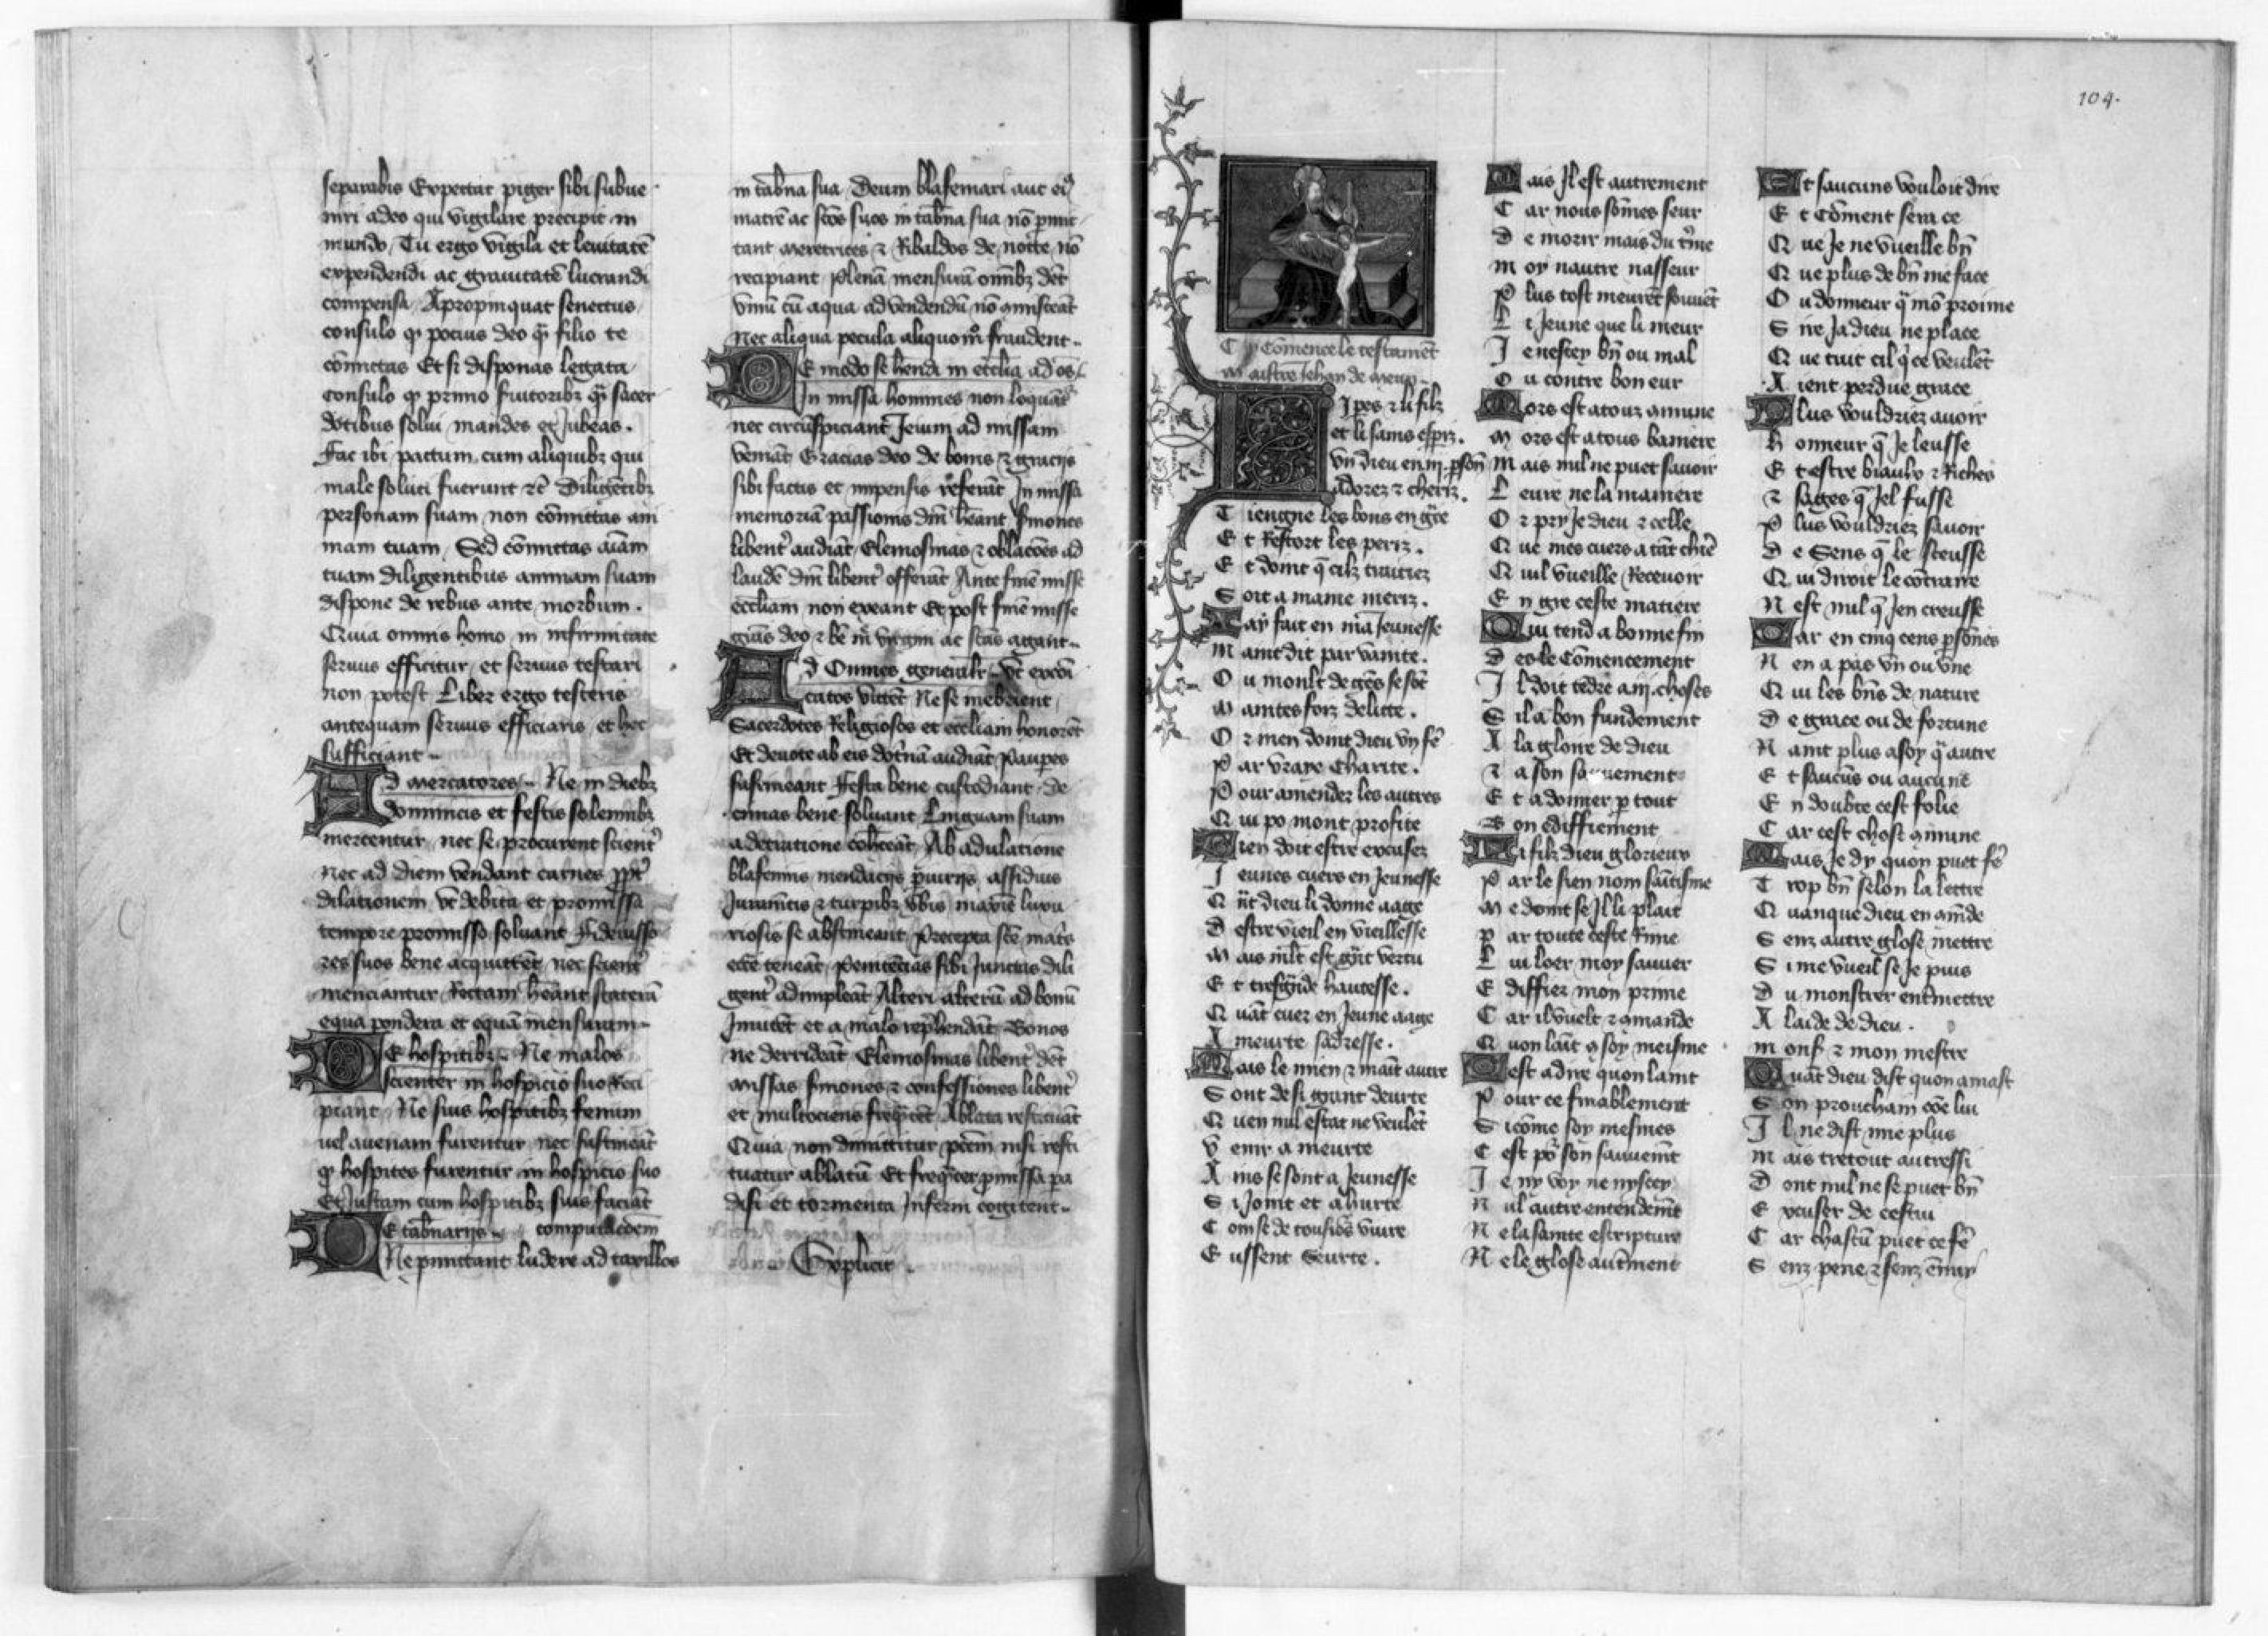 separabis Expectat piger sibi subue
niri a deo qui vigilare precipit in
mundo Tu ergo vigila et leuitatē
expendendi ac grauitatē lucrandi
compensa Apropinquat senectus
consulo q͛ pocius deo q̈ filio te
cōmittas Et si disponas legata
consulo q͛ primo seruitoribꝫ q̈ sacer
dotibus solui mandes et Jubeas.
Fac ibi pactum cum aliquibꝫ qui
male soluti fuerunt ⁊c̄ Diligētibꝫ
personam suam non cōmittas ani
mam tuam Sed cōmittas aīam
tuam diligentibus animam suam
dispone de rebus ante morbum.
Quia omnis homo in infirmitate
seruus efficitur et seruus testari
non potest Liber ergo testeris
antequam seruus efficiaris et hec
sufficiant
Ad mercatores Ne in diebꝫ
dominicis et festis solennibꝫ
mercentur nec se procurent scient͛
nec ad diem vendant carnes ppt͛
dilationem vt debita et promissa
tempore promisso soluant Fideiusso
res suos bene acquittēt nec scient͛
menciantur Rectam hēant staterā
equa pondera et equā mensuram
De hospitibꝫ Ne malos
scienter in hospicio suo Reci
piant Ne suis hospitibꝫ fenum
uel auenam furentur nec sustineāt
q͛ hospites furentur in hospicio suo
Et Justam cum hospitibꝫ suis faciāt
De tab̄narijs computacōem
Ne pmittant ludere ad taxillos
in tab̄na sua Deum blasfemari aut ei͛
matrē ac scōs suos in tab̄na sua nō pmit
tant meretrices ⁊ Ribaldos de nocte nō
recipiant Plenā mensurā omībꝫ dēt
vinū cū aqua ad vendendū nō misceāt
Nec aliqua pecula aliquo mō fraudent
De modo se hēndi in ecclīa ad oēs
In missa homines non loquāt͛
nec circūspiciant Jeiuni ad missam
veniāt Gracias deo de bonis ⁊ gracijs
sibi factis et impensis referāt In missa
memoriā passionis dn̄i hēant Smones
libent͛ audiāt Elemosinas ⁊ oblacōes ad
laudē dn̄i libent͛ offerāt Ante finē misse
ecclīam non exeant Et post finē misse
grās deo ⁊ bē m̄ virgini ac scīs agant
Ad Omnes general͛r vt excōi
catos vitēt Ne se inebrient
Sacerdotes Religiosos et ecclīam honorēt
Et deuote ab eis doct͛nā audiāt Paupes
sustineant Festa bene custodiant De
cimas bene soluant Linguam suam
a detractione cohēeāt Ab adulatione
blasfemijs mendacijs piurijs assiduis
Iuramētis ⁊ turpibꝫ v͛bis maxīe luxu
riosis se abstineant Precepta scē mat͛s
ecc̄e teneāt Penitēcias sibi Iunctas dili
gent͛ adimpleāt Alteri alterū ad bonū
Inuitēt et a malo rep͛hendāt Bonos
ne derrideāt Elemosinas libent͛ dēt
missas smones ⁊ confessiones libent͛
et multociens freq̄tēt Ablata restituāt
Quia non dimittitur pctm̄ nisi resti
tuatur ablatū Et freq̄nter pmissa pa
disi et tormenta Inferni cogitent
Explicit.
104.
Cy Cōmence le testament
Maistre Jehan de meun
Li peres ⁊ li filz
et li sains esperiz.
Vn dieu en .iij. psōn̄
Adorez ⁊ cheriz.
Tiengne les bons en grē
Et Restort les periz.
Et doint q̄ cilz traictiez
Soit a mame meriz.
Jay fait en ma Jeunesse
Maint dit par vanite.
Ou moult de gēs se sōt
Maintes foiz delitte.
Or men doint dieu vng fē
Par vraye Charite.
Pour amender les autres
Qui po mont profite
Bien doit estre excusez
Jeunes cuers en Jeunesse
Qn̄t dieu li donne aage
Destre vieil en vieillesse
Mais mlt̄ est gn̄t vertu
Et tresgn̄de haultesse.
Quāt cuer en Jeune aage
A meurte sadresse.
Mais le mien ⁊ maīt autre
Sont de si grant deurte
Quen nul estat ne veulēt
Venir a meurte
Ains se sont a Jeunesse
Si Joint et ahurte
Com se de tousiōs viure
Eussent seurte.
Mais Jl est autrement
Car nous sōmes seur
De morir mais du t͛me
Moy nautre nasseur
Plus tost meurēt souuēt
Li Jeune que li meur
Je ne scey bn̄ ou mal
Ou contre bon eur
Mors est a touz cōmune
Mors est a tous baniere
Mais nul ne puet sauoir
Leure ne la maniere
Or pry Je dieu ⁊ celle
Que mes cuers a tāt chiē
Quil vueille Receuoir
En gre ceste matiere
Qui tend a bonne fin
Des le Cōmencement
Jl doit tēdre a iij. choses
Sil a bon fundement
A la gloire de dieu
⁊ a son sauuement
Et a donner p tout
Bon ediffiement
Li filz dieu glorieux
Par le sien nom saītisme
Me doint se Jl li plait
Par toute ceste Rime
Lui loer moy sauuer
Ediffier mon prime
Car il vuelt ⁊ amande
Quon laīt cō soy meisme
Cest a dire quon laint
Pour ce finablement
Si cōme soy mesmes
Cest po͛ son sauuemīt
Je ny voy ne ny scey
Nul autre entendemēt
Ne la sainte escripture
Ne le glose autēment
Et saucuns vouloit dire
Et Cōment sera ce
Que Je ne vueille bn̄
Que plus de bn̄ me face
Ou donneur q̄ mō proime
Sire Ja dieu ne place
Que tuit cil q̄ ce veulēt
Aient perdue grace
Plus vouldriez auoir
Honneur q̄ Je leusse
Et estre biaulx ⁊ Riches
⁊ sages q̄ Jel fusse
Plus vouldriez sauoir
De Sens q̄ Je sceusse
Qui diroit le cōtraire
Nest nul q̄ Jen creusse
Car en cinq cens psōnes
Nen a pas vn ou vne
Qui les bn̄s de nature
De grace ou de fortune
Naint plus a soy q̄ autre
Et saucūs ou aucune
En doubte cest folie
Car cest chose cōmune
Mais Je dy quon puet fē
Trop bn̄ selon la lettre
Quanque dieu en cōmāde
Senz autre glose mettre
Si me vueil se Je puis
Du monstrer entmettre
A laide de dieu.
Mons͛ ⁊ mon mestre
Quāt dieu dist quon amast
Son proucham cōe lui
Jl ne dist mie plus
Mais tretout autressi
Dont nul ne se puet bn̄
Excuser de cestui
Car chascū puet ce fē
Senz pene ⁊ senz ēnuy